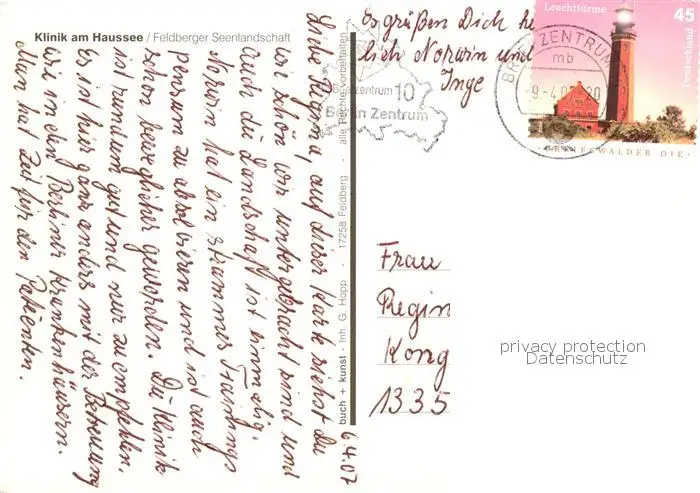 Klinik am Haussee / Feldberger Seenlandschaft
Liebe Regina, auf dieser Karte siehst Du
wie schön wir untergebracht sind und
auch die Landschaft ist einmalig.
Norwin hat ein strammes Trainings
pensum zu absolvieren und ist auch
schon beweglicher geworden. Die Klinik
ist rundum gut und nur zu empfehlen.
Es ist hier ganz anders mit der Betreuung
wie in den Berliner Krankenhäusern.
Man hat Zeit für den Patienten.
6.4.07
Es grüßen Dich he
lich Norwin und
Inge
buch + kunst · Inh. G. Hopp · 17258 Feldberg · alle Rechte vorbehalten
Briefzentrum 10
Berlin Zentrum
ZENTRUM
mb
-9.-4.07
Leuchttürme
45
Deutschland
GREIFSWALDER OIE
Frau
Regin
Kong
1335
privacy protection
Datenschutz